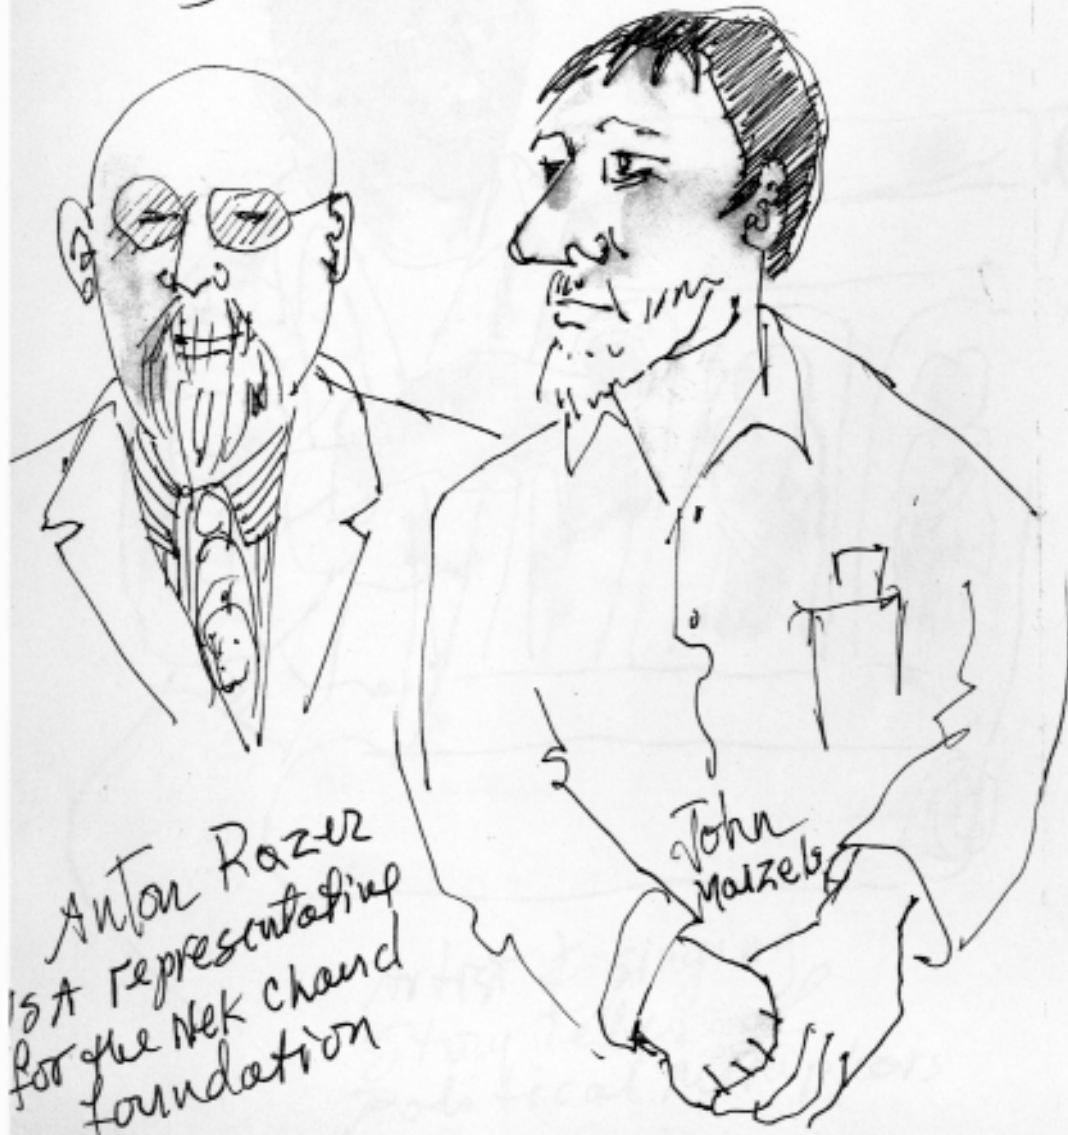 Anton Razer
is A representative
for the Nek Chand
foundation
John
Maizels